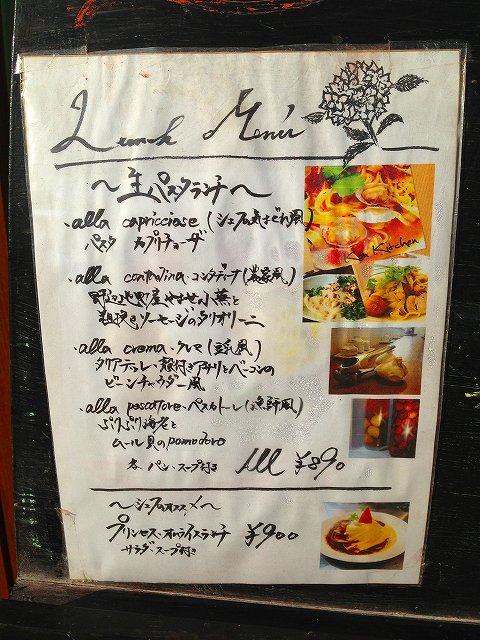 Lunch Menu
～生パスタランチ～
・alla capricciose (シェフの気まぐれ風)
パスタ カプリチョーザ
・alla contadina コンタディーナ (農家風)
粗挽きソーセージのタリオリーニ
・alla crema・クレマ (豆乳風)
タリアテッレ・殻付きアサリとベーコンの
ビーンチャウダー風
・alla pescatore・ペスカトーレ (漁師風)
ぷりぷり海老と
ムール貝のpomodoro
各 パン・スープ付き All ¥890
～シェフのオススメ～
プリンセス・オムライスランチ ¥900
サラダ・スープ付き
Kitchen